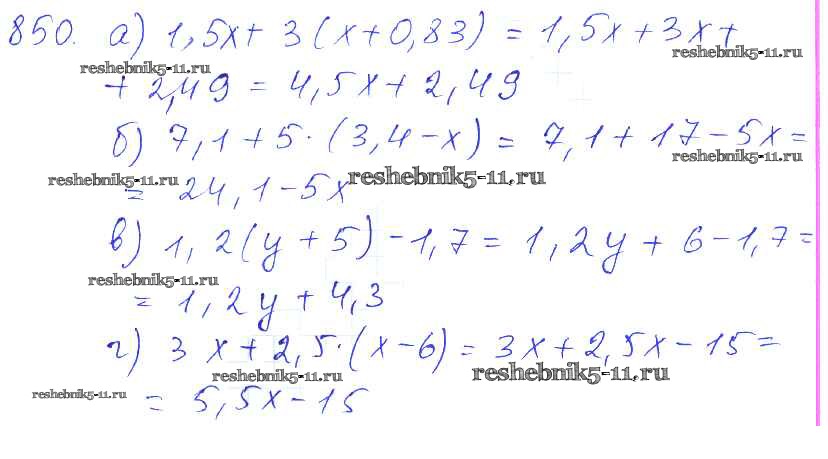 850. а) 1,5x + 3(x+0,83) = 1,5x+3x+
reshebnik5-11.ru
reshebnik5-11.ru
+ 2,49 = 4,5x + 2,49
б) 7,1+5·(3,4-x) = 7,1+17-5x=
reshebnik5-11.ru
reshebnik5-11.ru
reshebnik5-11.ru
= 24,1-5x
в) 1,2(y+5)-1,7=1,2y+6-1,7=
reshebnik5-11.ru
= 1,2y+4,3
г) 3x+2,5·(x-6)=3x+2,5x-15=
reshebnik5-11.ru
reshebnik5-11.ru
reshebnik5-11.ru
= 5,5x-15